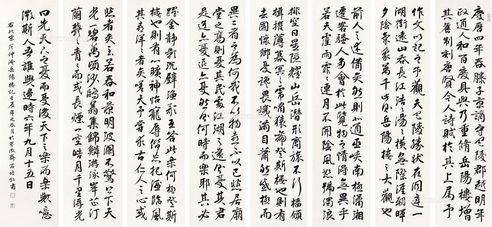 慶曆四年春滕子京謫守巴陵郡越明年
政通人和百廢具興乃重修岳陽樓增
其舊制刻唐賢今人詩賦於其上屬予
作文以記之予觀夫巴陵勝狀在洞庭一
湖銜遠山吞長江浩浩湯湯橫無際涯朝暉
夕陰氣象萬千此則岳陽樓之大觀也
前人之述備矣然則北通巫峽南極瀟湘
遷客騷人多會於此覽物之情得無異乎
若夫霪雨霏霏連月不開陰風怒號濁浪
排空日星隱耀山岳潛形商旅不行檣傾
楫摧薄暮冥冥虎嘯猿啼登斯樓也則有
去國懷鄉憂讒畏譏滿目蕭然感極而
異二者之為何哉不以物喜不以己悲居廟
堂之高則憂其民處江湖之遠則憂其君
是進亦憂退亦憂然則何時而樂耶其必
躍金靜影沉璧漁歌互答此樂何極登斯
樓也則有心曠神怡寵辱皆忘把酒臨風
其喜洋洋者矣嗟夫予嘗求古仁人之心或
悲者矣至若春和景明波瀾不驚上下天
光碧萬頃沙鷗翔集錦鱗游泳岸芷汀
蘭郁郁青青而或長煙一空皓月千里浮光
曰先天下之憂而憂後天下之樂而樂歟噫
微斯人吾誰與歸時六年九月十五日